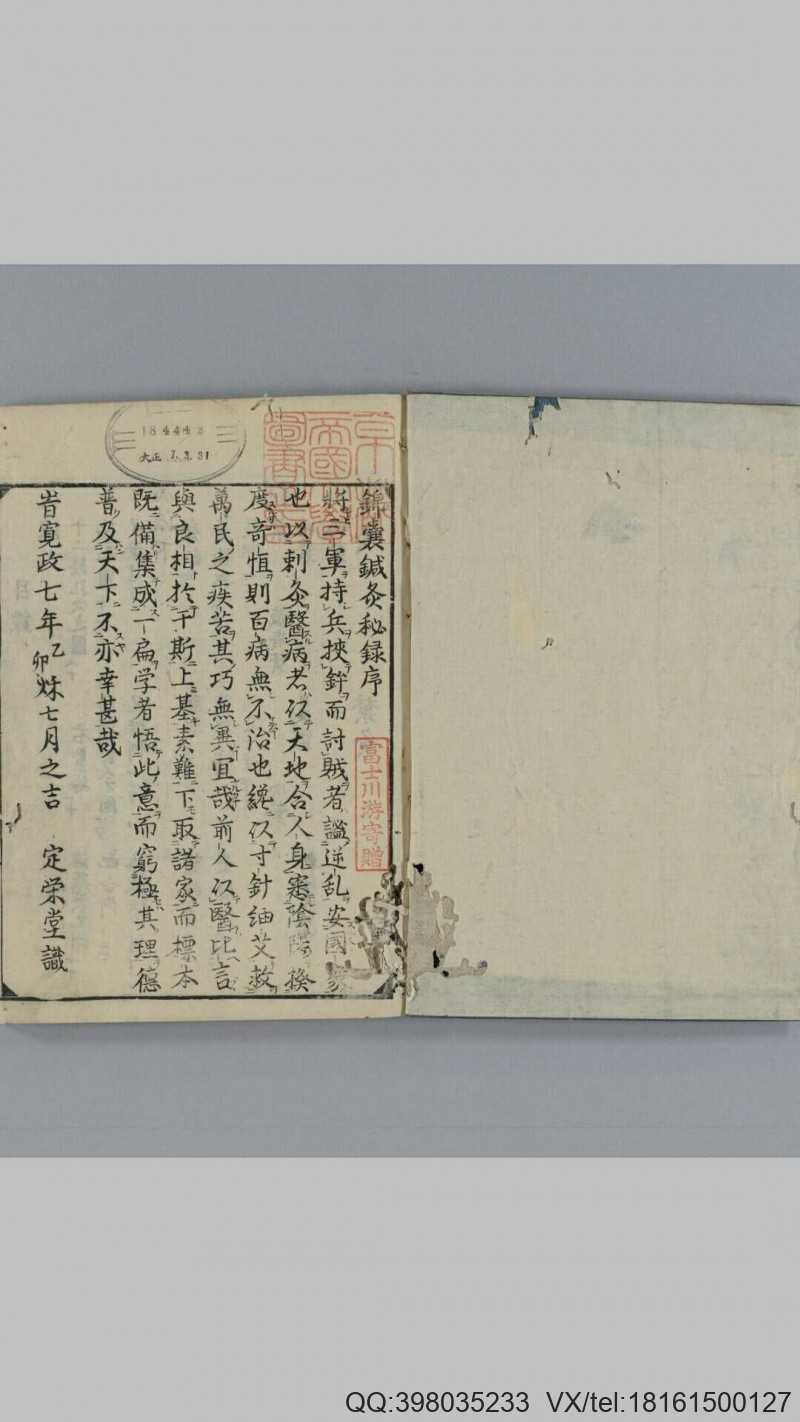 錦囊鍼灸秘録序
將三軍持兵挾鉾而討賊者謐逆乱安國家
也以刺灸醫病者以天地合人身察陰陽揆
度奇恒則百病無不治也纔以寸針細艾救
萬民之疾苦其巧無異宜哉前人以醫比言
與良相於干斯上基素難下取諸家而標本
既備集成一扁学者悟此意而窮極其理德
普及天下不亦幸甚哉
旹寛政七年乙卯秌七月之吉 定栄堂識
富士川游寄贈
帝國
圖書
184443
大正 7.3.31
QQ:398035233 VX/tel:18161500127